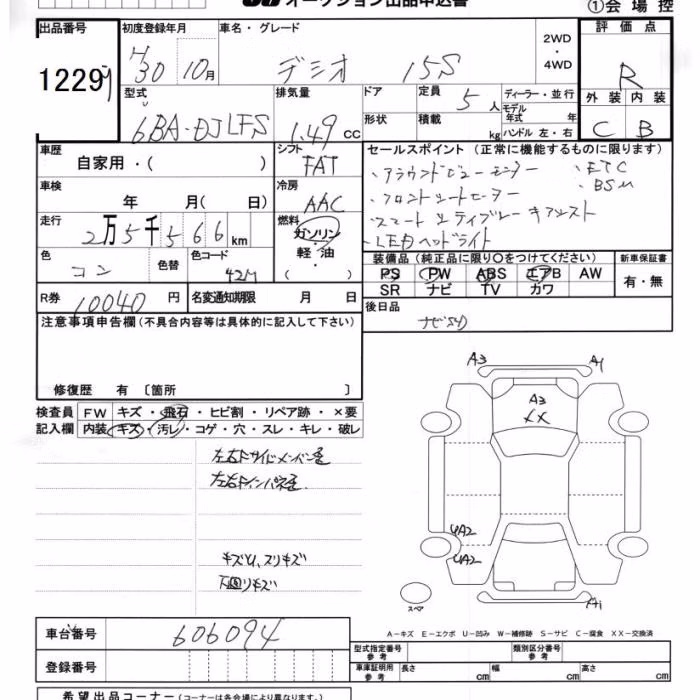 オークション出品申込書 ①会場控
出品番号 初度登録年月 車名・グレード 2WD・4WD 評価点
1229 H30 10月 デミオ 15S R
型式 排気量 ドア 定員 5人 ディーラー・並行 外装 内装
6BA-DJLFS 1.49cc 形状 積載 kg モデル年式 年 ハンドル 左・右 C B
車歴 シフト セールスポイント (正常に機能するものに限ります)
自家用・( ) FAT ・アラウンドビューモニター ・ETC
車検 冷房 ・フロントシートヒーター ・BSM
年 月( 日) AAC ・スマートシティブレーキアシスト
走行 燃料 ・LEDヘッドライト
2万5千566km ガソリン・軽・油・( )
色 色替 色コード 装備品 (純正品に限り○をつけてください) 新車保証書
コン 42M PS PW ABS エアB AW 有・無
R券 10040円 名変通知期限 月 日 SR ナビ TV カワ
注意事項申告欄 (不具合内容等は具体的に記入して下さい) 後日品
ナビSD
修復歴 有 〔箇所 〕
A3 A1
A3
XX
検査員記入欄 FW キズ・飛石・ヒビ割・リペア跡・×要
内装 キズ・汚レ・コゲ・穴・スレ・キレ・破レ
左右Fサイドメンバー歪
左右Fインパネ歪
UA2
UA2
キズU,スリキズ
下回リキズ
スペア A1
A-キズ E-エクボ U-凹み W-補修跡 S-サビ C-腐食 XX-交換済
車台番号 606094 型式指定番号 参考 類別区分番号 参考
登録番号 車庫証明用 参考 長さ cm 幅 cm 高さ cm
希望出品コーナー (コーナーは各会場により異なります。)